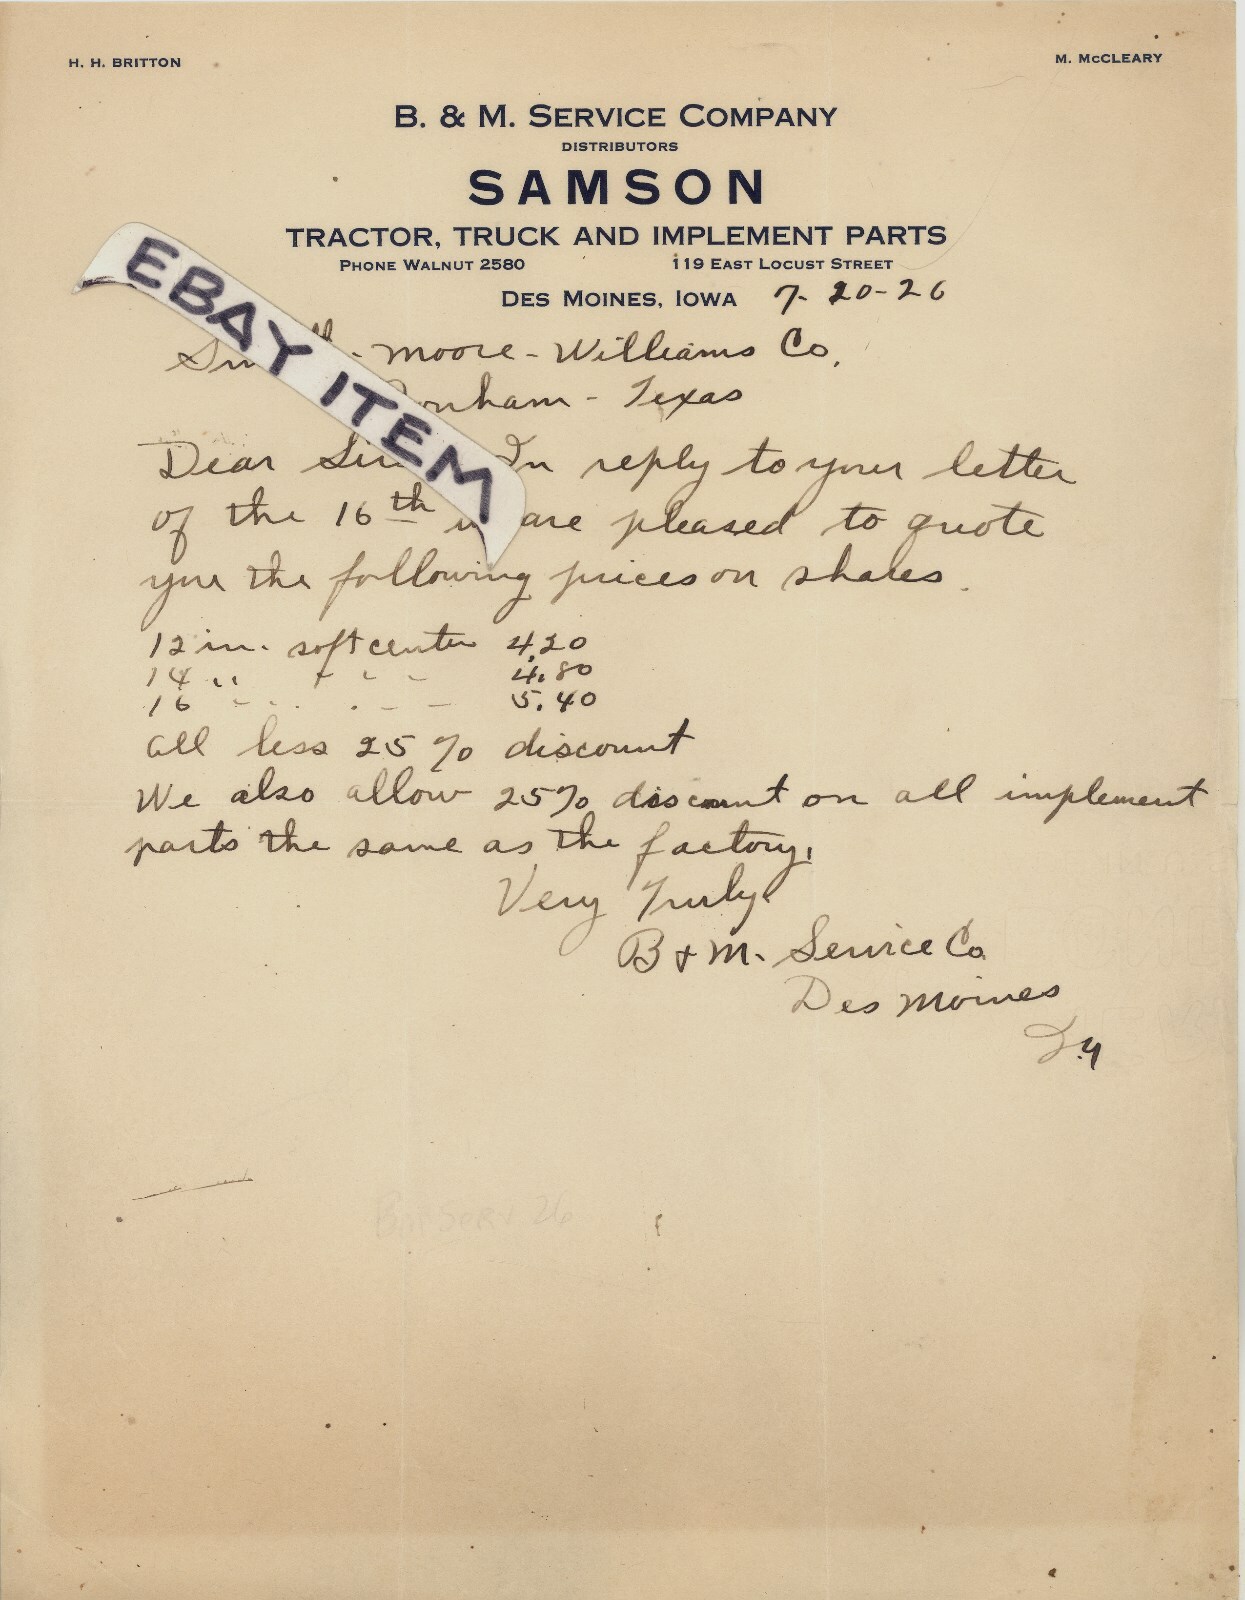 H. H. BRITTON
M. McCLEARY
B. & M. SERVICE COMPANY
DISTRIBUTORS
SAMSON
TRACTOR, TRUCK AND IMPLEMENT PARTS
PHONE WALNUT 2580 119 EAST LOCUST STREET
DES MOINES, IOWA 7-20-26
EBAY ITEM
- Moore - Williams Co.
onham - Texas
Dear In reply to your letter
of the 16th are pleased to quote
you the following prices on shares.
12 in. soft center 4.20
14 " " " " 4.80
16 " " " " 5.40
all less 25% discount
We also allow 25% discount on all implement
parts the same as the factory.
Very Truly
B & M. Service Co
Des Moines